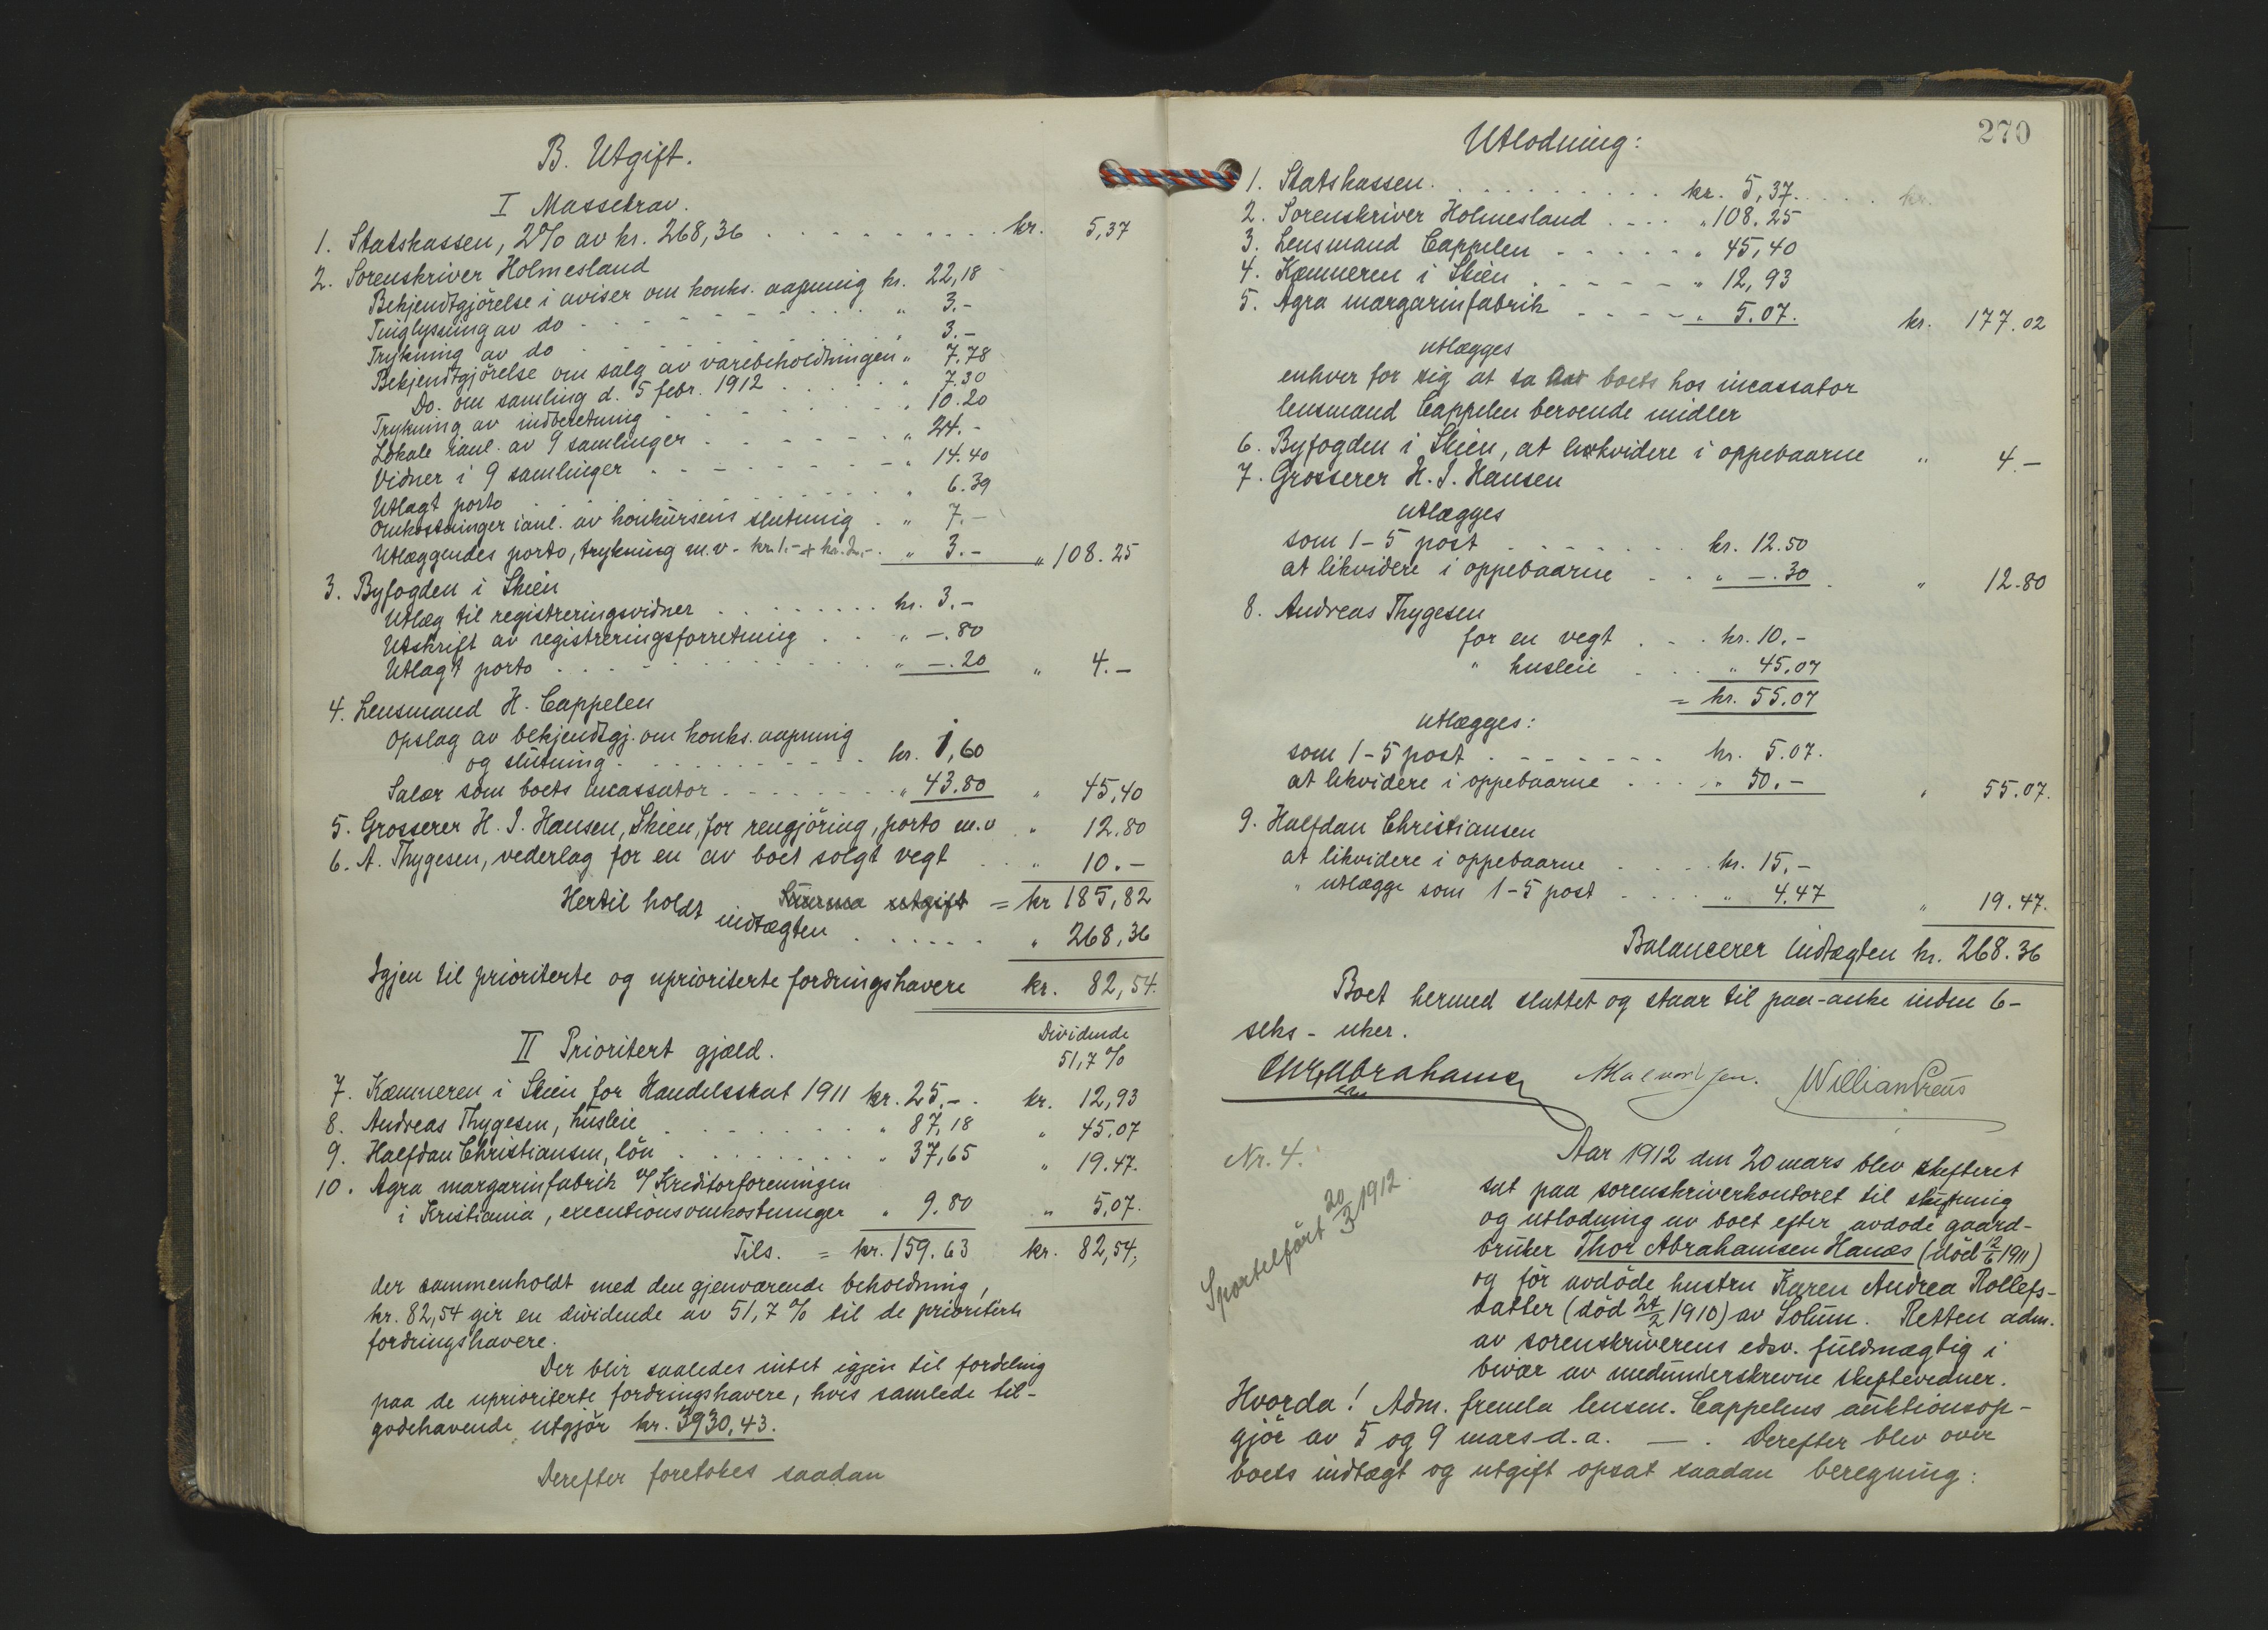 B. Utgift.
I Massekrav.
1. Statskassen, 2% av kr. 268,36 . . . . . . . . . kr. 5,37
2. Sorenskriver Holmesland
Bekjendtgjörelse i aviser om konks. aapning kr. 22,18
Tinglysning av do . . . . . . . . " 3.-
Trykning av do . . . . . . . . " 3.-
Bekjendtgjörelse om salg av varebeholdningen " 7.78
Do. om samling d. 5 febr. 1912 . . . . . " 7.30
Trykning av indberetning . . . . . . . " 10.20
Lokale i anl. av 9 samlinger . . . . . . " 24.-
Vidner i 9 samlinger . . . . . . . . " 14.40
Utlagt porto . . . . . . . . . " 6.39
Omkostninger i anl. av konkursens slutning . " 7.-
Utlæggendes porto, trykning m.v. - kr. 1.- + kr. 2.- . " 3.- " 108.25
3. Byfogden i Skien
Utlæg til registreringsvidner . . . . . . . . kr. 3.-
Utskrift av registreringsforretning . . " -.80
Utlagt porto . . . . . . . . . . " -.20 " 4.-
4. Lensmand H. Cappelen
Opslag av bekjendtgj. om konks. aapning
og slutning . . . . . . . . . . kr. 1,60
Salær som boets incassator . . . . . . . " 43.80 " 45,40
5. Grosserer H. J. Hansen, Skien, for rengjöring, porto m.v . " 12.80
6. A. Thygesen, vederlag for en av boet solgt vegt . . " 10.-
Summa utgift = kr 185,82
Hertil holdt indtægten . . . . . . " 268,36
Igjen til prioriterte og uprioriterte fordringshavere kr. 82,54.
II Prioritert gjæld.
Dividende
51,7 %
7. Kæmneren i Skien for Handelsskat 1911 kr. 25.- . kr. 12,93
8. Andreas Thygesen, husleie . . . . . . . " 87,18 " 45.07
9. Halfdan Christiansen, lön . . . . . . . . " 37,65 " 19.47.
10. Agra margarinfabrik v/ Kreditorforeningen
i Kristiania, executionsomkostninger " 9.80 " 5,07.
Tils. = kr. 159.63 kr. 82,54,
der sammenholdt med den gjenværende beholdning,
kr. 82,54 gir en dividende av 51,7 % til de prioriterte
fordringshavere.
Der blir saaledes intet igjen til fordeling
paa de uprioriterte fordringshavere, hvis samlede til-
godehavende utgjör kr. 3930,43.
Derefter foretokes saadan
270
Utlodning:
1. Statskassen . . . . . . . . . . kr. 5,37. . . . . kr.
2. Sorenskriver Holmesland . . . . " 108.25
3. Lensmand Cappelen . . . . . . " 45,40
4. Kæmneren i Skien . . . . . . " 12,93
5. Agra margarinfabrik . . . . . " 5.07. kr. 177.02
utlægges
enhver for sig at ta boets hos incassator
lensmand Cappelen beroende midler
6. Byfogden i Skien, at likvidere i oppebaarne " 4.-
7. Grosserer H. J. Hansen
utlægges
som 1-5 post . . . . . . . kr. 12.50
at likvidere i oppebaarne . . " -.30 . " 12.80
8. Andreas Thygesen
for en vegt . . . kr. 10.-
" husleie . . . " 45.07
= kr. 55.07
utlægges:
som 1-5 post . . . . . . . kr. 5.07.
at likvidere i oppebaarne . . . " 50.- " 55.07.
9. Halfdan Christiansen
at likvidere i oppebaarne . . . . kr. 15.-
" utlægge som 1-5 post . . . . " 4.47 " 19.47.
Balancerer indtægten kr. 268.36
Boet hermed sluttet og staar til paa-anke inden 6-
seks - uker.
Chr. Abrahamsen William Preus
Nr. 4.
Sportelfört 20/3 1912.
Aar 1912 den 20 mars blev skifteret
sat paa sorenskriverkontoret til slutning
og utlodning av boet efter avdöde gaard-
bruker Thor Abrahamsen Hanæs (död 12/6 1911)
og för avdöde hustru Karen Andrea Rollefs-
datter (död 24/2 1910) av Solum. Retten adm.
av sorenskriverens edsv. fuldmægtig i
bivær av medunderskrevne skiftevidner.
Hvorda! Adm. fremla lensm. Cappelens auktionsop-
gjör av 5 og 9 mars d.a. —. Derefter blev over
boets indtægt og utgift opsat saadan beregning: